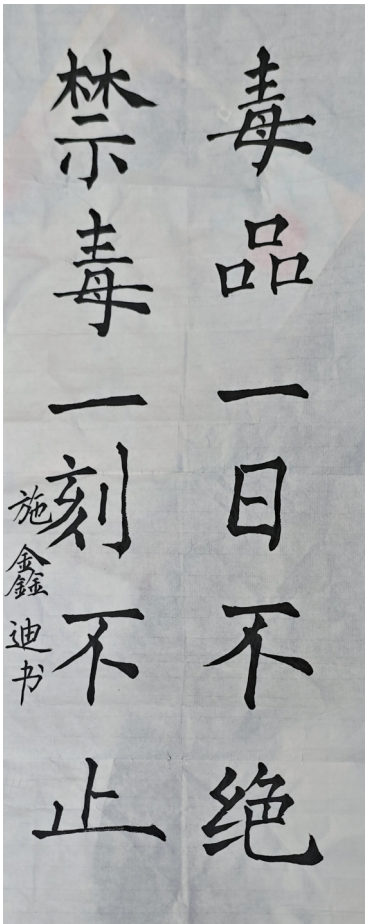 毒品一日不绝
禁毒一刻不止
施鑫迪书